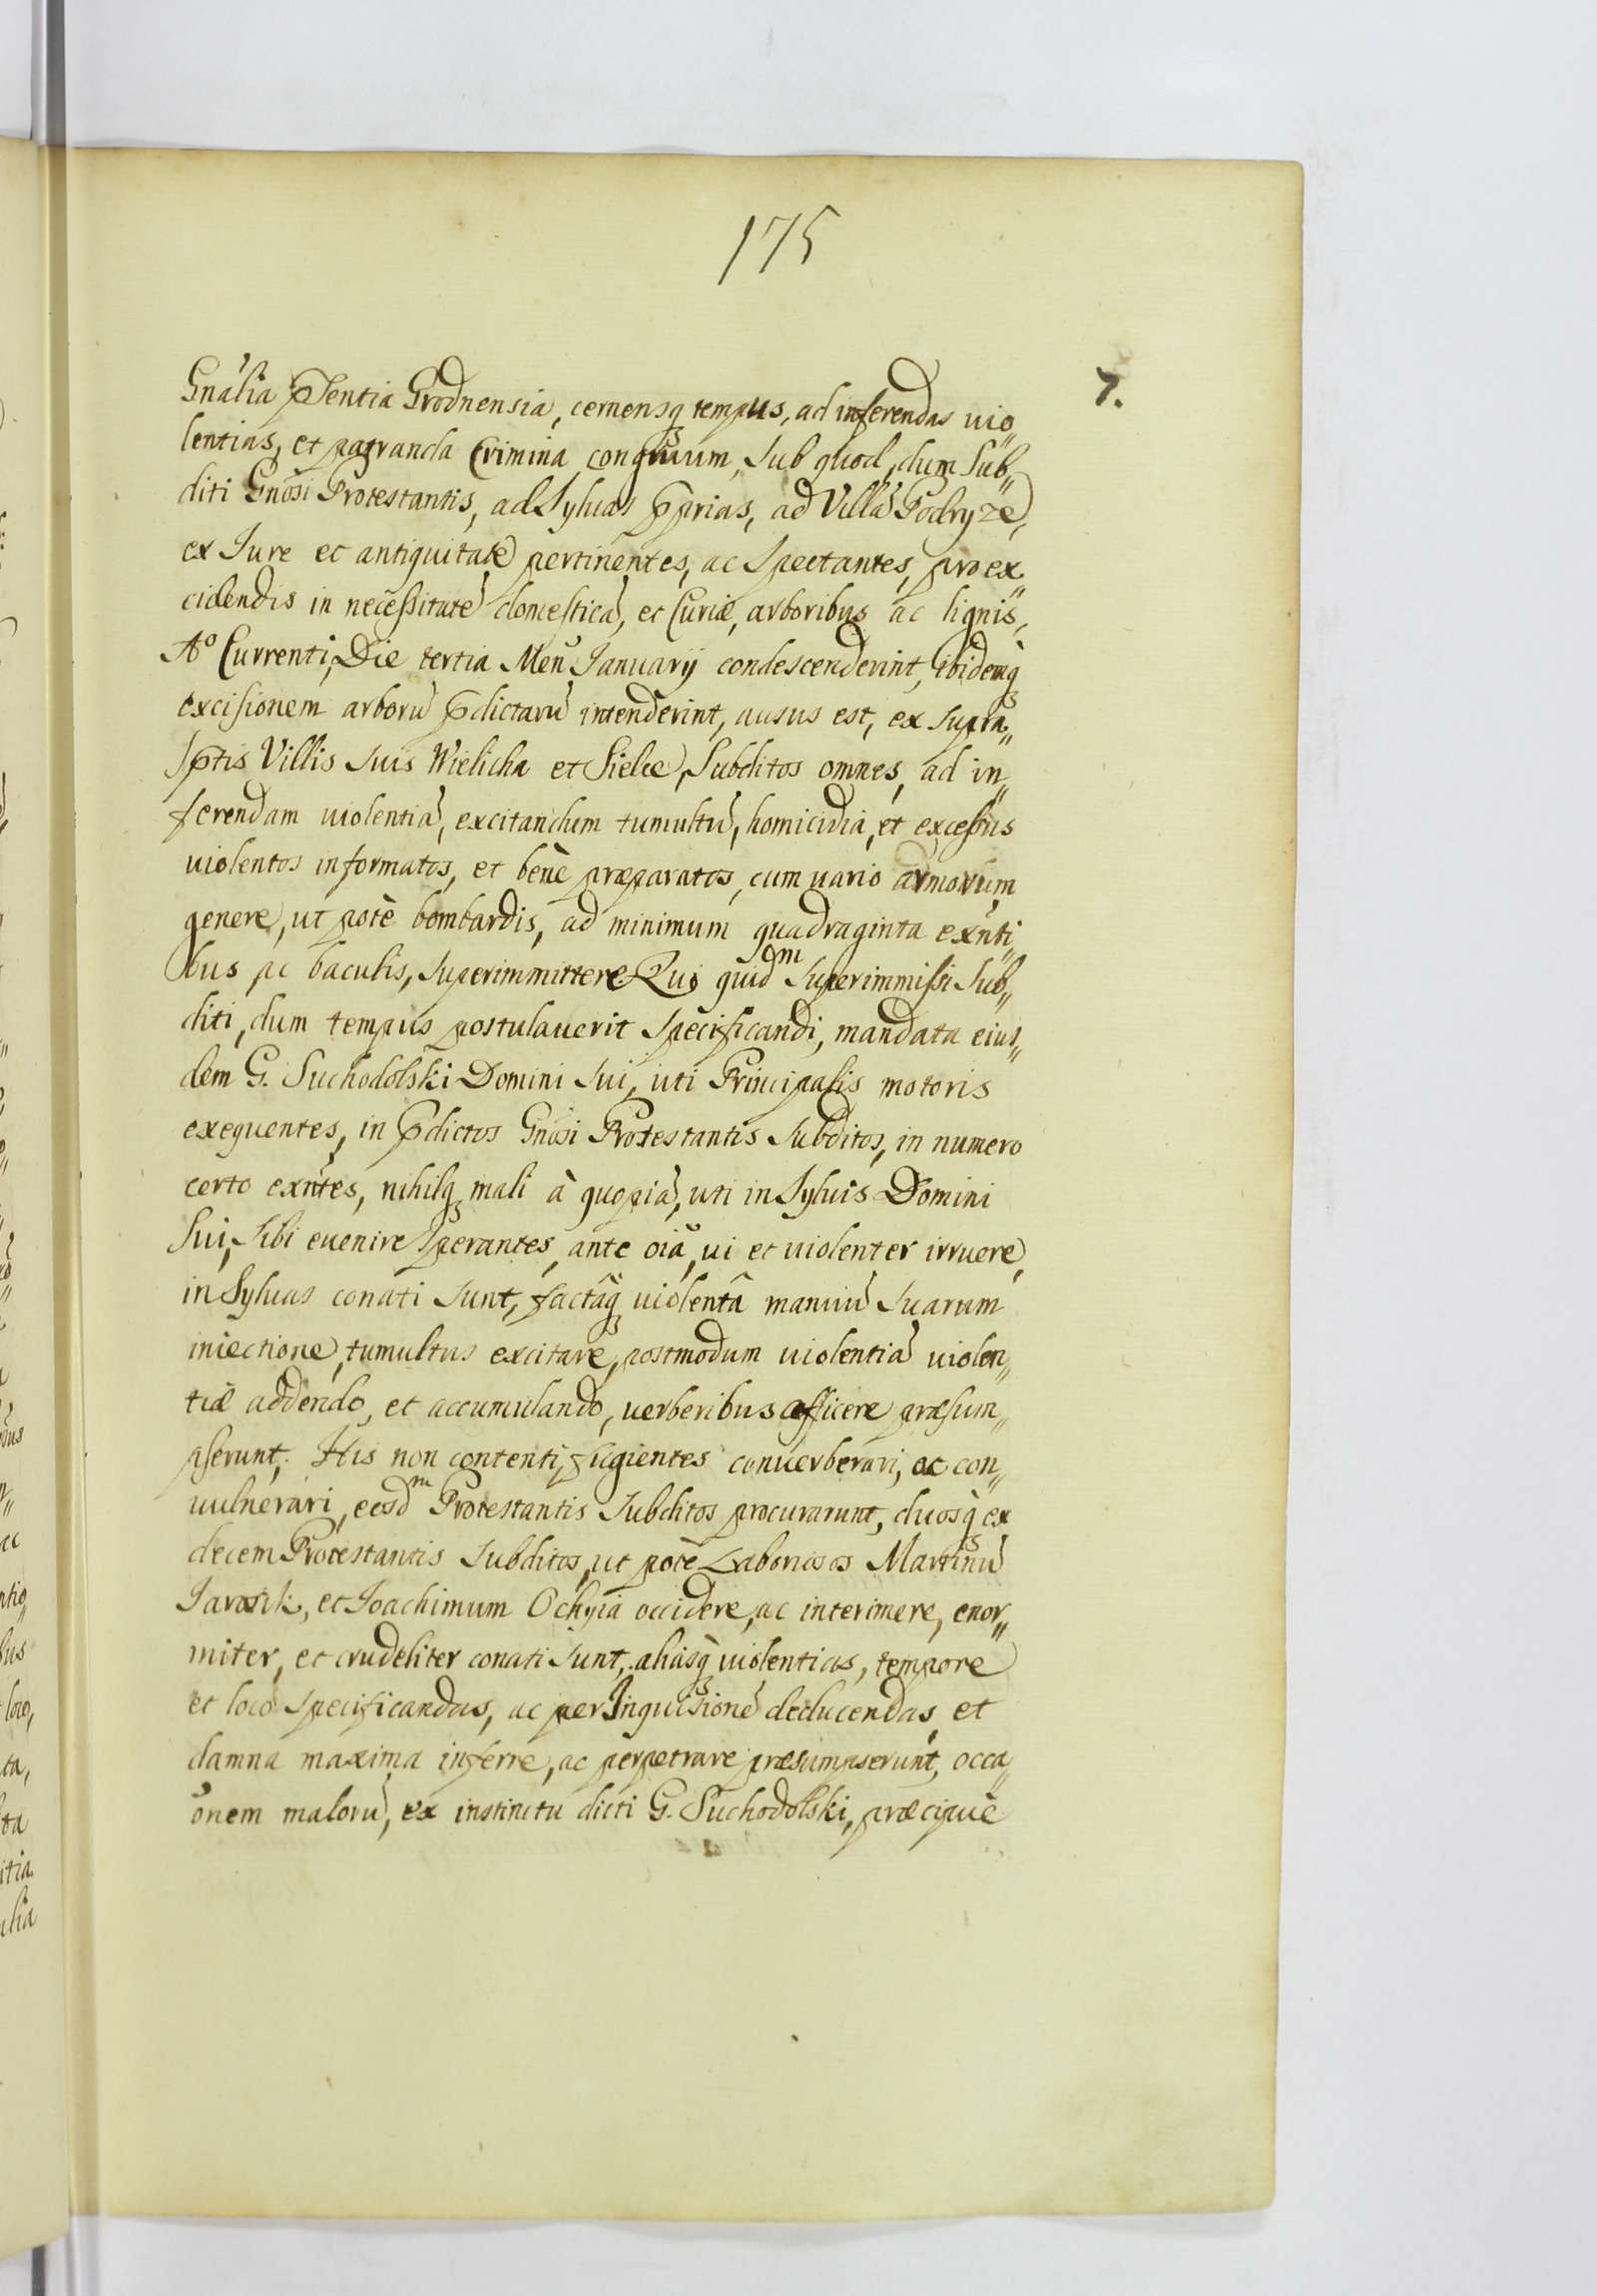 175
7.
Gnalia pntia Grodnensia, cernensq tempus, ad inferendas uio„
lentias, et patranda Crimina congruum, Sub quod, dum Sub„
diti Gnosi Protestantis, ad Syluas pprias, ad Villā Podryze,
ex Iure et antiquitate pertinentes, ac Spectantes, pro ex„
cidendis in necessitatē domesticā, et Curiæ, arboribus ac lignis,
Aº Currenti, Die tertia Men Ianuarij condescenderint, ibidemq
excisionem arborū pdictarū intenderint, ausus est, ex supra„
sptis Villis Suis Wielicha et Sielce, Subditos omnes, ad in„
ferendam uiolentiā, excitandum tumultū, homicidia, et excessus
uiolentos informatos, et benè præparatos, cum uario armorum
genere, ut potè bombardis, ad minimum quadraginta exnti„
bus ac baculis, superimmittere. Qui quidm Superimmissi Sub„
diti, dum tempus postulauerit Specificandi, mandata eius„
dem G. Suchodolski Domini Sui, uti Principalis motoris
exequentes, in pdictos Gnosi Protestantis Subditos, in numero
certo exntes, nihilq mali à quopiā, uti in Syluis Domini
Sui, Sibi euenire Sperantes, ante oia, ui et uiolenter irruere,
in Syluas conati Sunt, factâq uiolentâ manuū Suarum
iniectione, tumultus excitare, postmodum uiolentiā uiolen„
tiæ addendo, et accumulando, uerberibus afficere præsum„
pserunt, His non contenti, fugientes conuerberari, ac con„
uulnerari, eosdm Protestantis Subditos procurarunt, duosq ex
decem Protestantis Subditos, ut potè Laboriosos Martinū
Iarosik, et Ioachimum Ochyia occidere, ac interimere, enor„
miter, et crudeliter conati Sunt, aliasq uiolentias, tempore
et loco Specificandas, ac per Inquisitionē deducendas, et
damna maxima inferre, ac perpetrare præsumpserunt, occa„
onem malorū, ex instinctu dicti G. Suchodolski, præcipuè